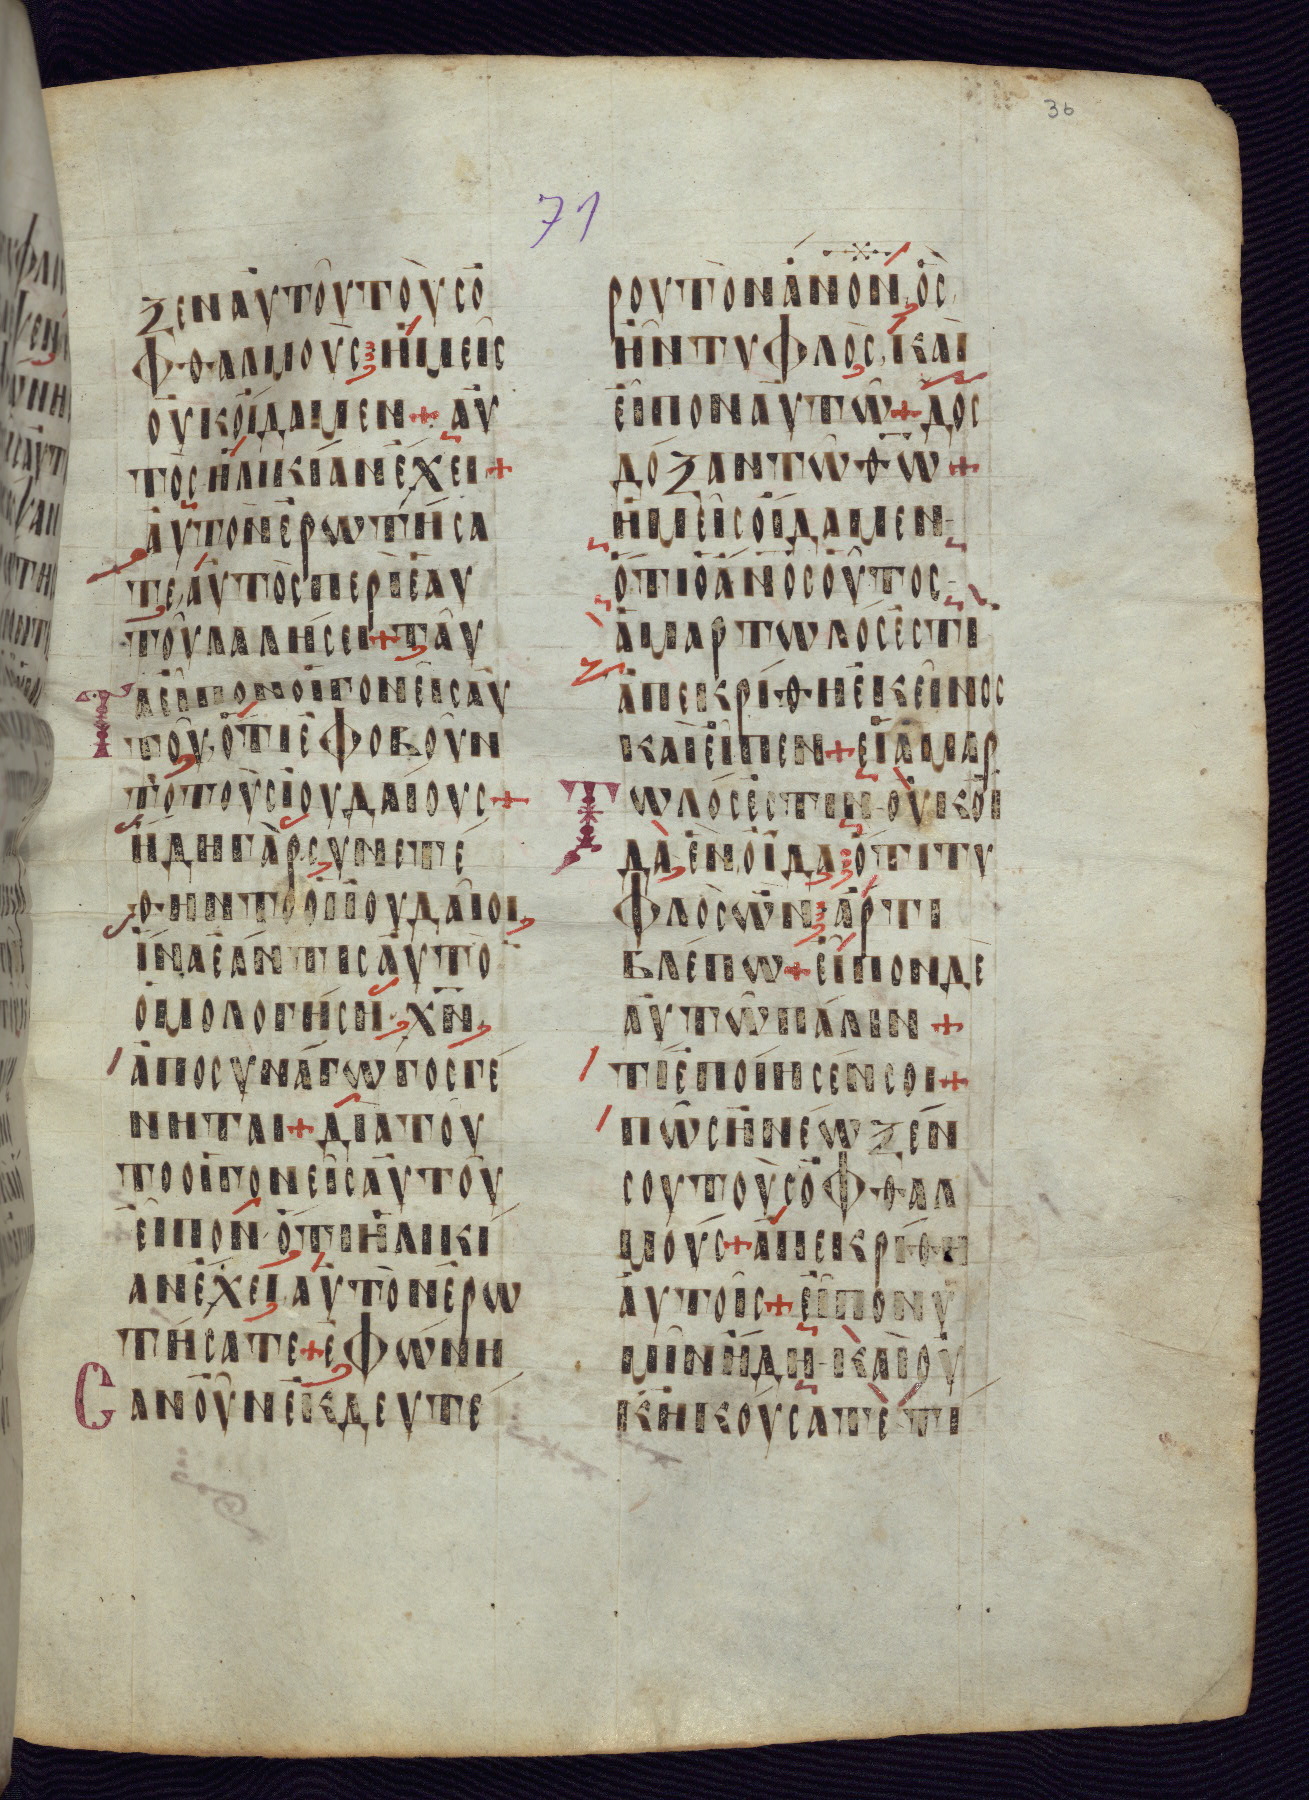 36
71
ξεν αὐτοῦ τοὺς ὀ
φθαλμοὺς ἡμεῖς
οὐκ οἴδαμεν + αὐ
τὸς ἡλικίαν ἔχει +
αὐτὸν ἐρωτήσα
τε, αὐτὸς περὶ ἑαυ
τοῦ λαλήσει + ταῦ
τα εἶπον οἱ γονεῖς αὐ
τοῦ, ὅτι ἐφοβοῦν
το τοὺς ἰουδαίους +
ἤδη γὰρ συνετέ
θηντο οἱ ἰουδαῖοι,
ἵνα ἐάν τις αὐτὸ
ὁμολογήση χν,
ἀποσυνάγωγος γέ
νηται + διὰ τοῦ
το οἱ γονεῖς αὐτοῦ
εἶπον ὅτι ἡλικί
αν ἔχει, αὐτὸν ἐρω
τήσατε + ἐφώνη
σαν οὖν ἐκ δευτέ
ρου τὸν ἀνον, ὃς
ἦν τυφλὸς, καὶ
εἶπον αὐτῶ + δὸς
δόξαν τῶ θω +
ἡμεῖς οἴδαμεν
ὅτι ὁ ἀνος οὗτος
ἁμαρτωλός ἐστι
ἀπεκρίθη ἐκεῖνος
καὶ εἶπεν + εἰ ἁμαρ
τωλός ἐστιν οὐκ οἶ
δα, ἓν οἶδα ὅτι τυ
φλὸς ὢν ἄρτι
βλέπω + εἶπον δὲ
αὐτῶ πάλιν +
τί ἐποίησέν σοι +
πῶς ἠνέωξέν
σου τοὺς ὀφθαλ
μούς + ἀπεκρίθη
αὐτοῖς + εἶπον ὑ
μῖν ἤδη καὶ οὐ
κ ἠκούσατε τί